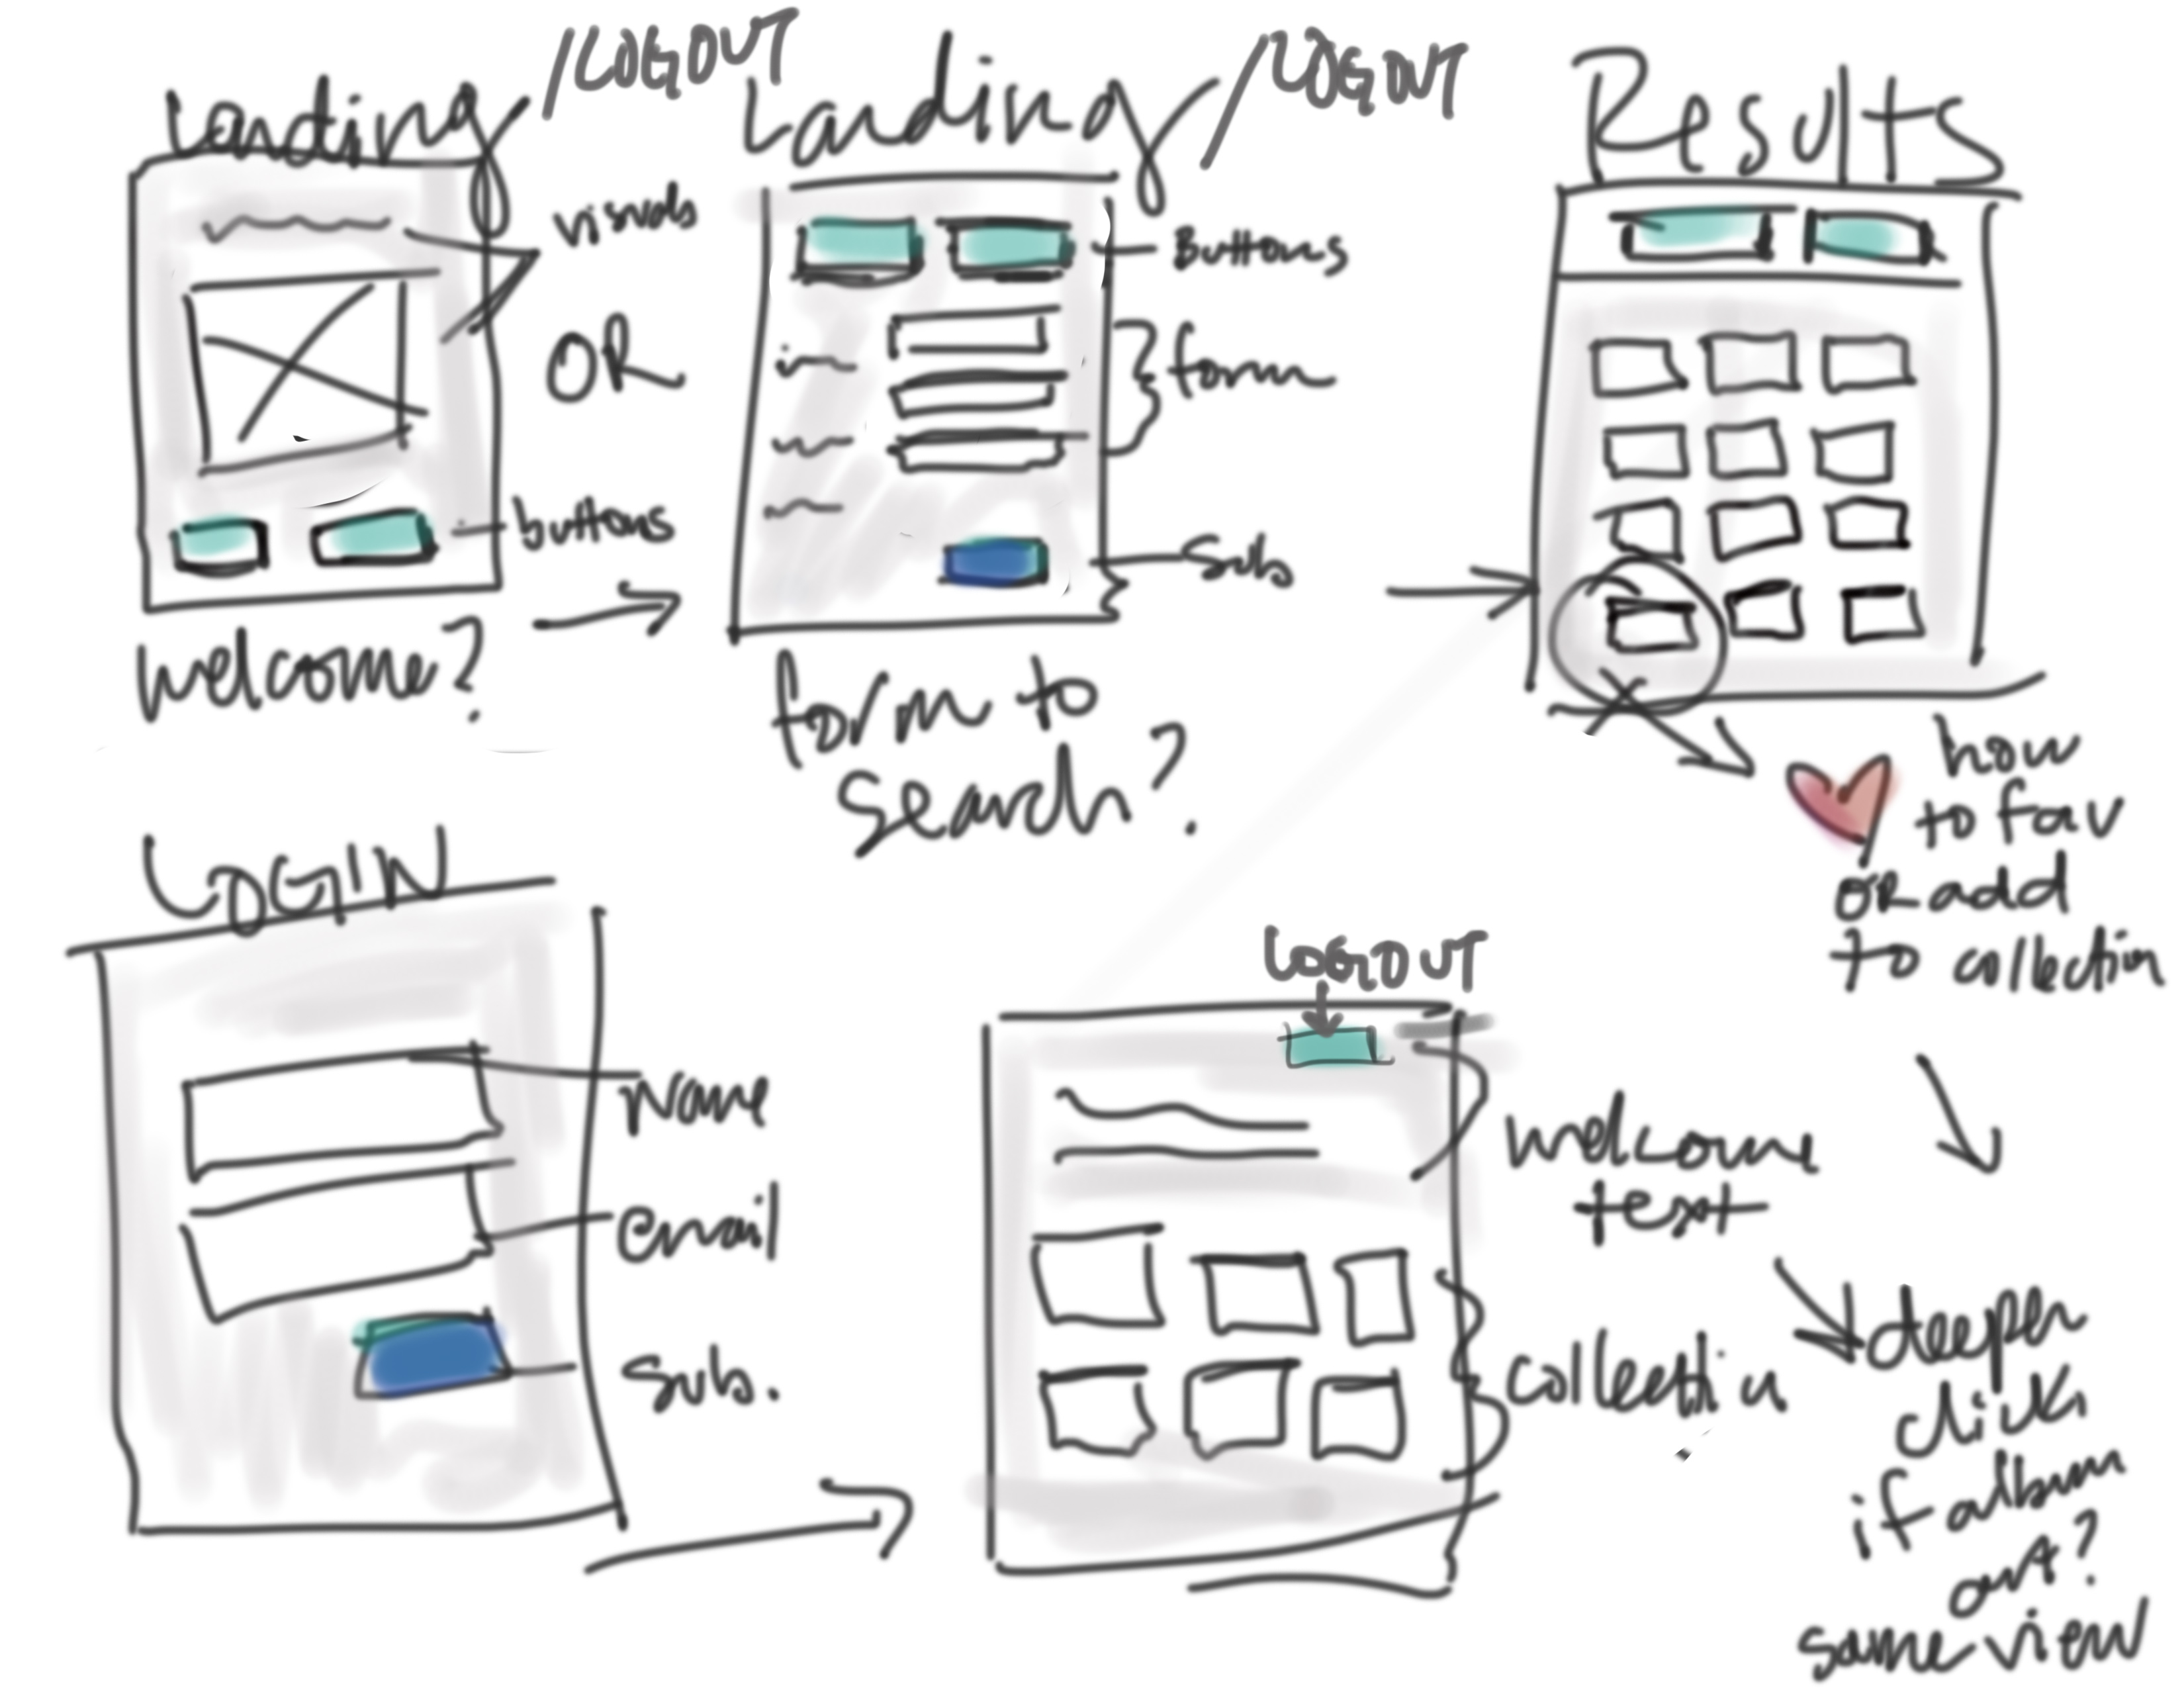 Landing /LOGOUT
visuals
OR
buttons
welcome?
Landing /LOGOUT
Buttons
form
Sub
form to
search?
Results
how
to fav
OR add
to collection
LOGIN
Name
email
Sub.
LOGOUT
welcome
text
collectin
deeper
click
if album
art?
same view